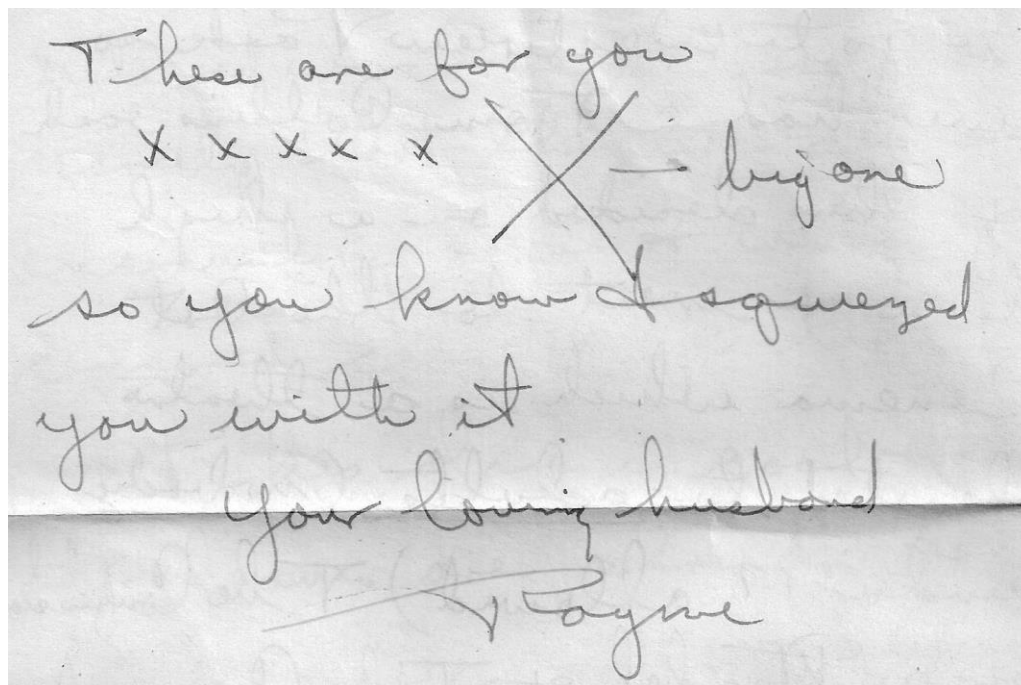 These are for you
x x x x x X — big one
so you know I squeezed
you with it
Your loving husband
Rayne